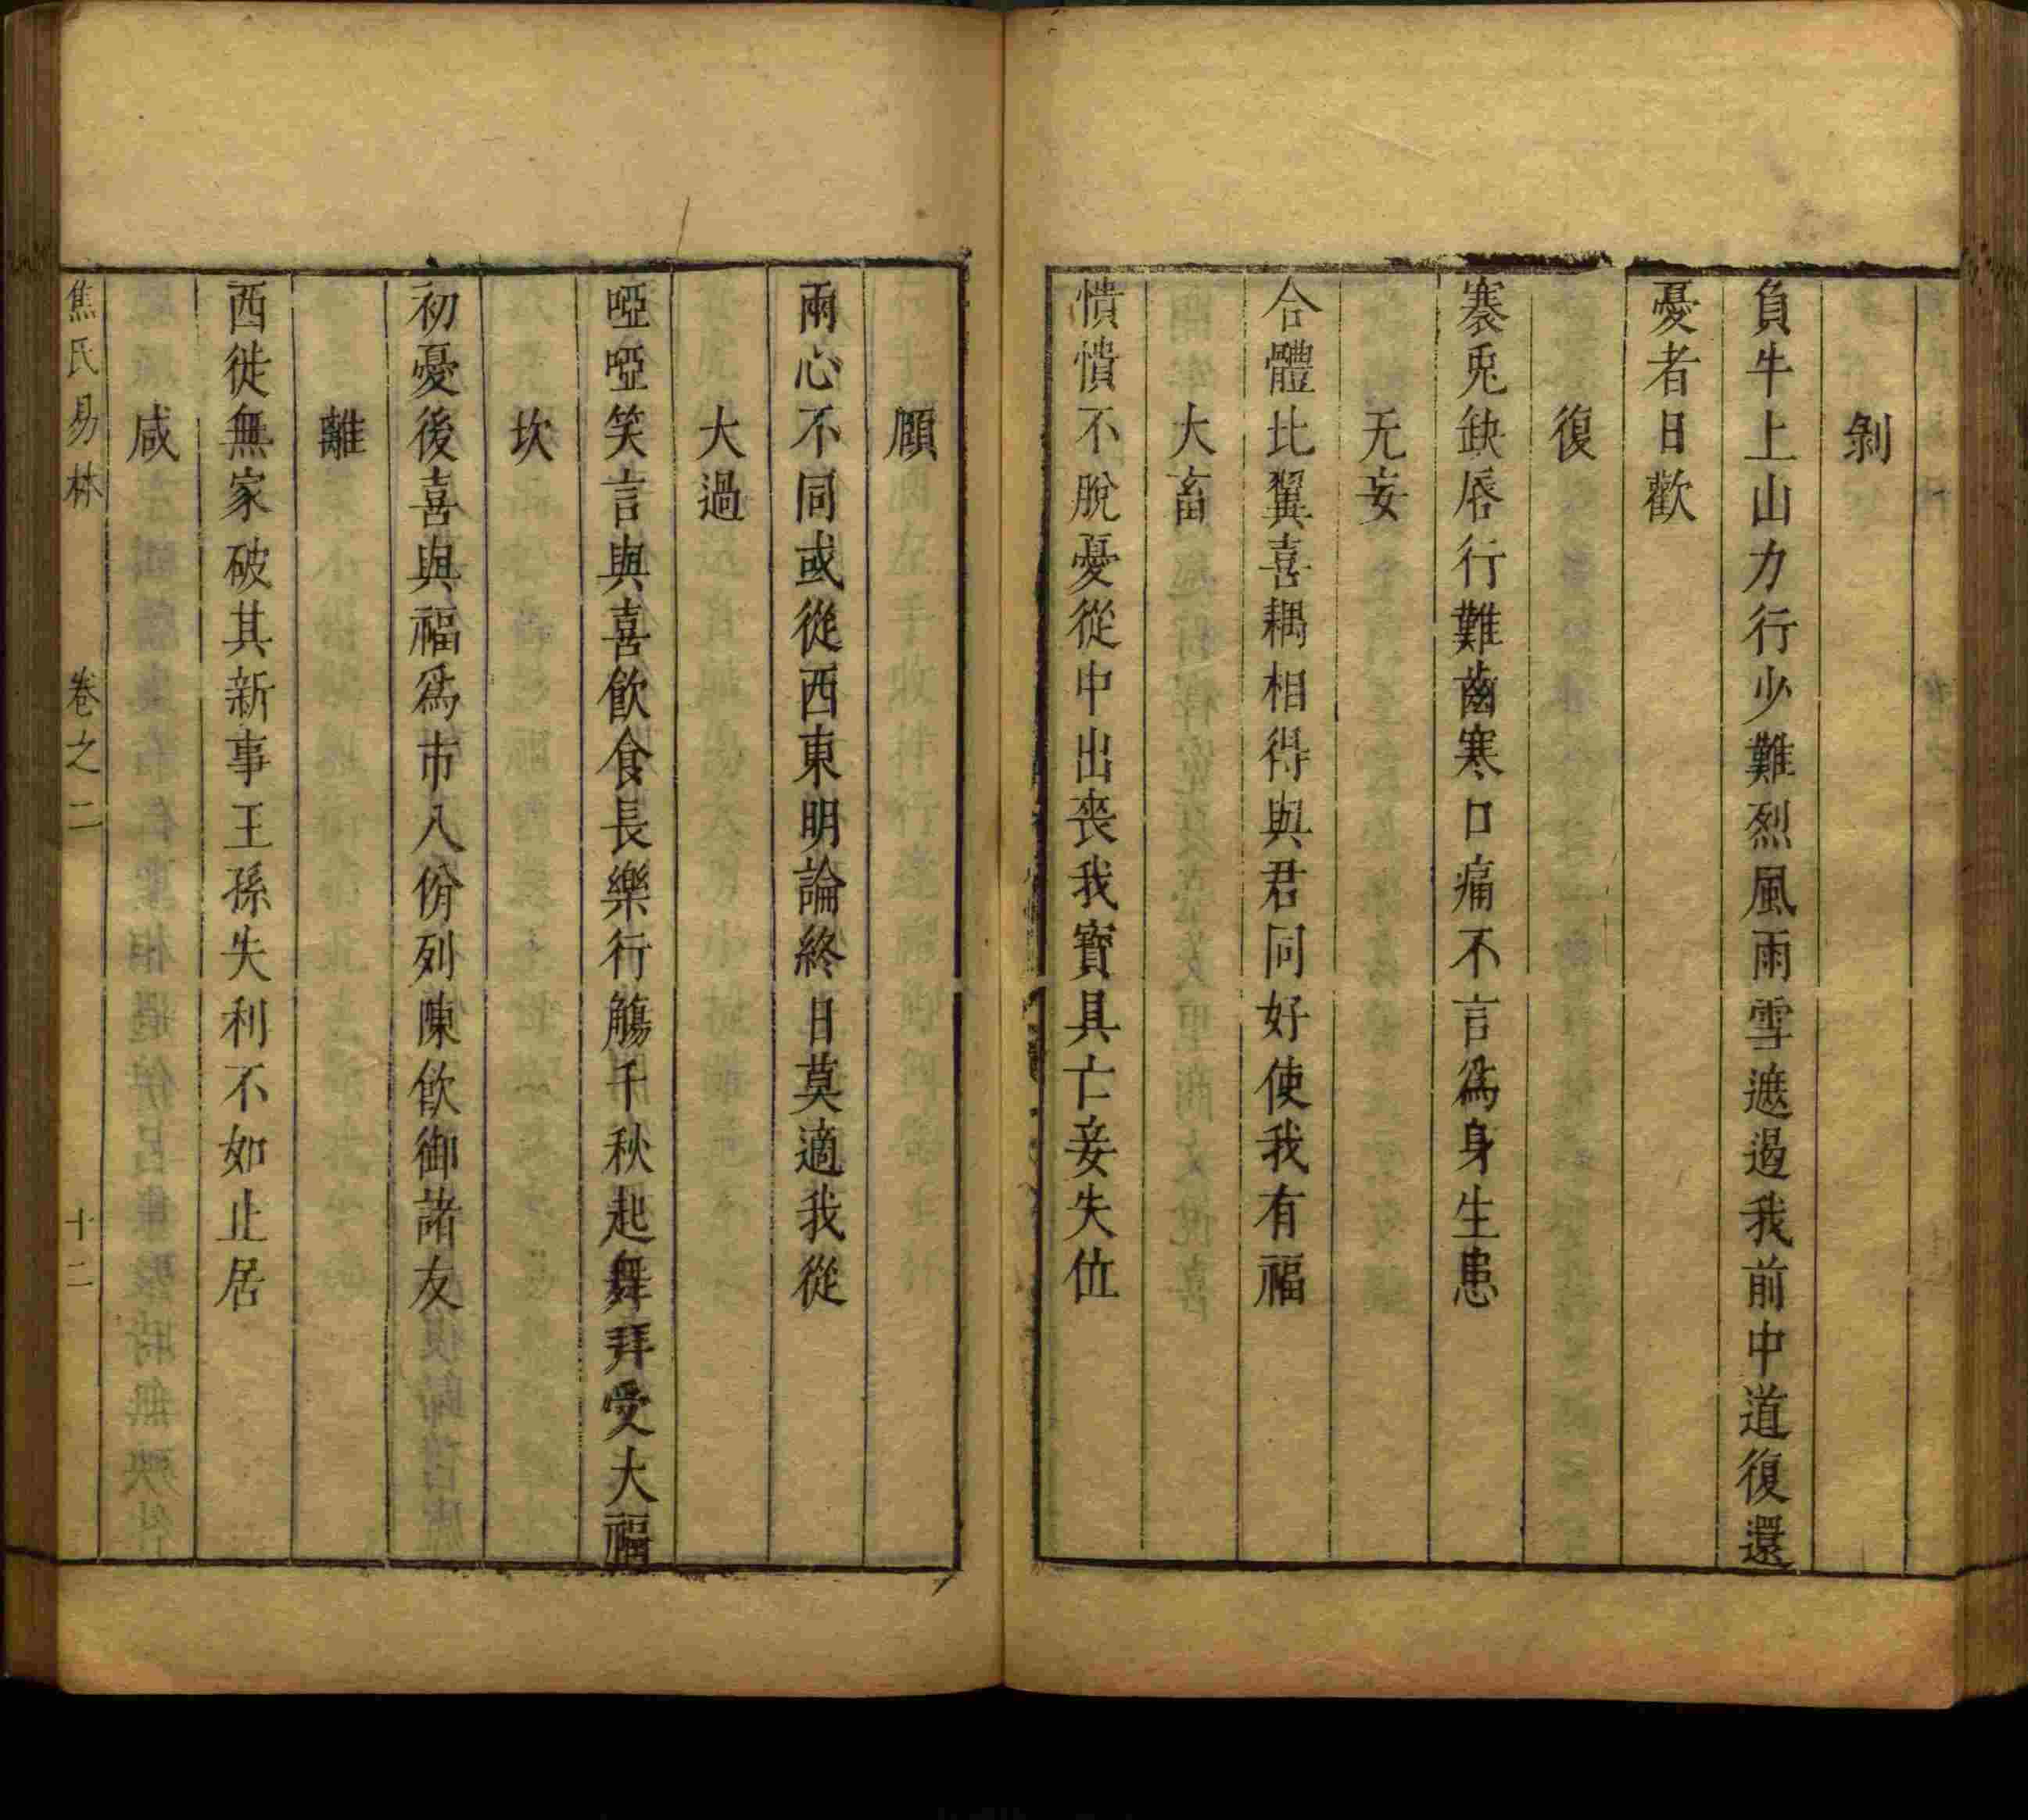 剝
負牛上山力行少難烈風雨雪遮遏我前中道復還
憂者日歡
復
褰兎缺唇行難齒寒口痛不言爲身生患
无妄
合體比翼喜耦相得與君同好使我有福
大畜
憒憒不脫憂從中出喪我寶貝亡妾失位
頤
兩心不同或從西東明論終日莫適我從
大過
啞啞笑言與喜飲食長樂行觴千秋起舞拜受大福
坎
初憂後喜與福爲市八佾列陳飲御諸友
離
西徙無家破其新事王孫失利不如止居
咸
焦氏易林 卷之二 十二